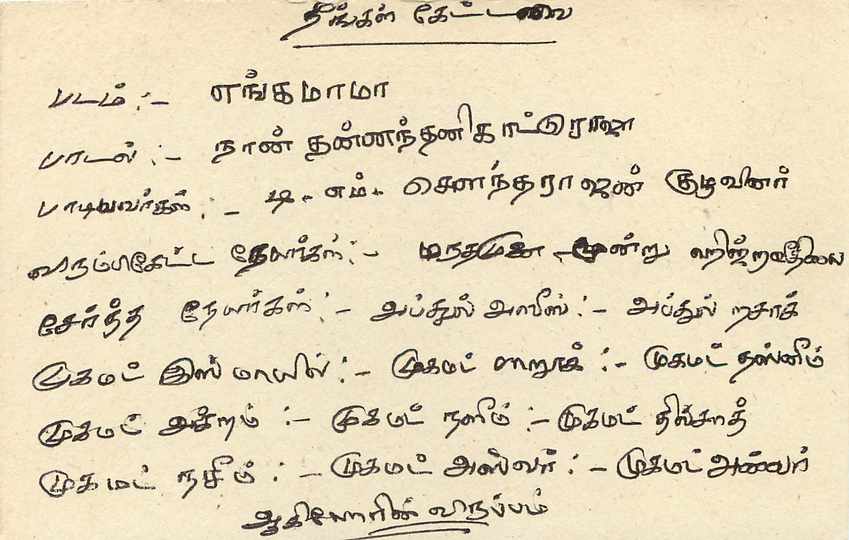 நீங்கள் கேட்டவை
படம் :- எங்கமாமா
பாடல் :- நான் தன்னந்தனிகாட்டுராஜா
பாடியவர்கள் :- டி. எம். சௌந்தரராஜன் குழுவினர்
விரும்பிகேட்ட நேயர்கள் :- மருதமுனை - மூன்று ஹிஜ்றாவீதியை
சேர்ந்த நேயர்கள் :- அப்துல் அஸீஸ் :- அப்துல் றசாக்
முகமட் இஸ்மாயில் :- முகமட் பாறூக் :- முகமட் தஸ்னீம்
முகமட் அக்றம் :- முகமட் நளீம் :- முகமட் தில்சாத்
முகமட் நசீம் :- முகமட் அஸ்வர் :- முகமட் அன்வர்
ஆகியோரின் விருப்பம்